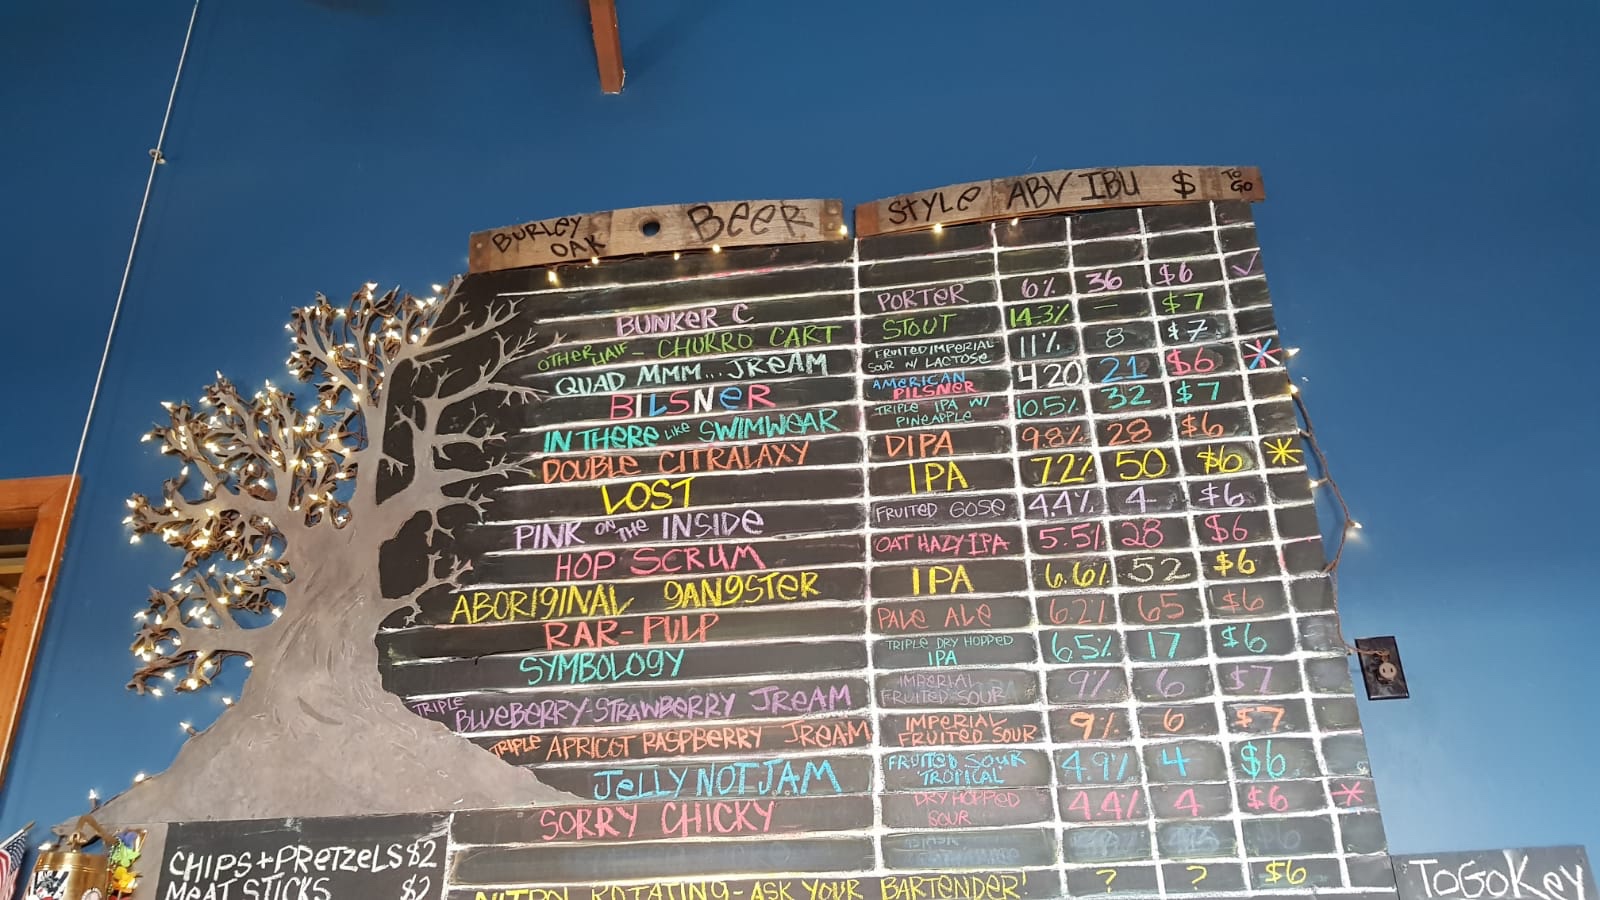 BURLEY OAK BEER STYLE ABV IBU $ TO GO
BUNKER C PORTER 6% 36 $6 ✓
OTHER HALF - CHURRO CART STOUT 14.3% — $7
QUAD MMM... JREAM FRUITED IMPERIAL SOUR W/ LACTOSE 11% 8 $7
BILSNER AMERICAN PILSNER 420 21 $6 *
IN THERE LIKE SWIMWEAR TRIPLE IPA W/ PINEAPPLE 10.5% 32 $7
DOUBLE CITRALAXY DIPA 9.8% 28 $6
LOST IPA 7.2% 50 $6 *
PINK ON THE INSIDE FRUITED GOSE 4.4% 4 $6
HOP SCRUM OAT HAZY IPA 5.5% 28 $6
ABORIGINAL GANGSTER IPA 6.6% 52 $6
RAR-PULP PALE ALE 6.2% 65 $6
SYMBOLOGY TRIPLE DRY HOPPED IPA 6.5% 17 $6
TRIPLE BLUEBERRY-STRAWBERRY JREAM IMPERIAL FRUITED SOUR 9% 6 $7
TRIPLE APRICOT RASPBERRY JREAM IMPERIAL FRUITED SOUR 9% 6 $7
JELLY NOT JAM FRUITED SOUR "TROPICAL" 4.9% 4 $6
SORRY CHICKY DRY HOPPED SOUR 4.4% 4 $6 *
NITRO ROTATING - ASK YOUR BARTENDER! ? ? $6
CHIPS + PRETZELS $2
MEAT STICKS $2
TO GO KEY